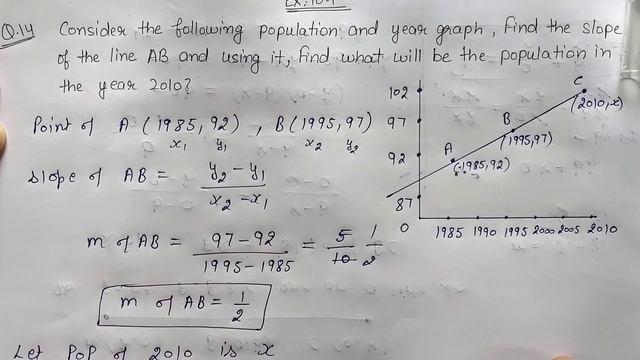 Ex: 10.1
Q.14 Consider the following population and year graph, Find the slope
of the line AB and using it, find what will be the population in
the year 2010?
Point of A (1985, 92) , B (1995, 97)
x₁ y₁ x₂ y₂
Slope of AB = y₂ - y₁ / x₂ - x₁
m of AB = 97-92 / 1995-1985 = 5/10 1/2
m of AB = 1/2
Let PoP of 2010 is x
102
97
92
87
0
1985 1990 1995 2000 2005 2010
A
(1985,92)
B
(1995,97)
C
(2010,x)